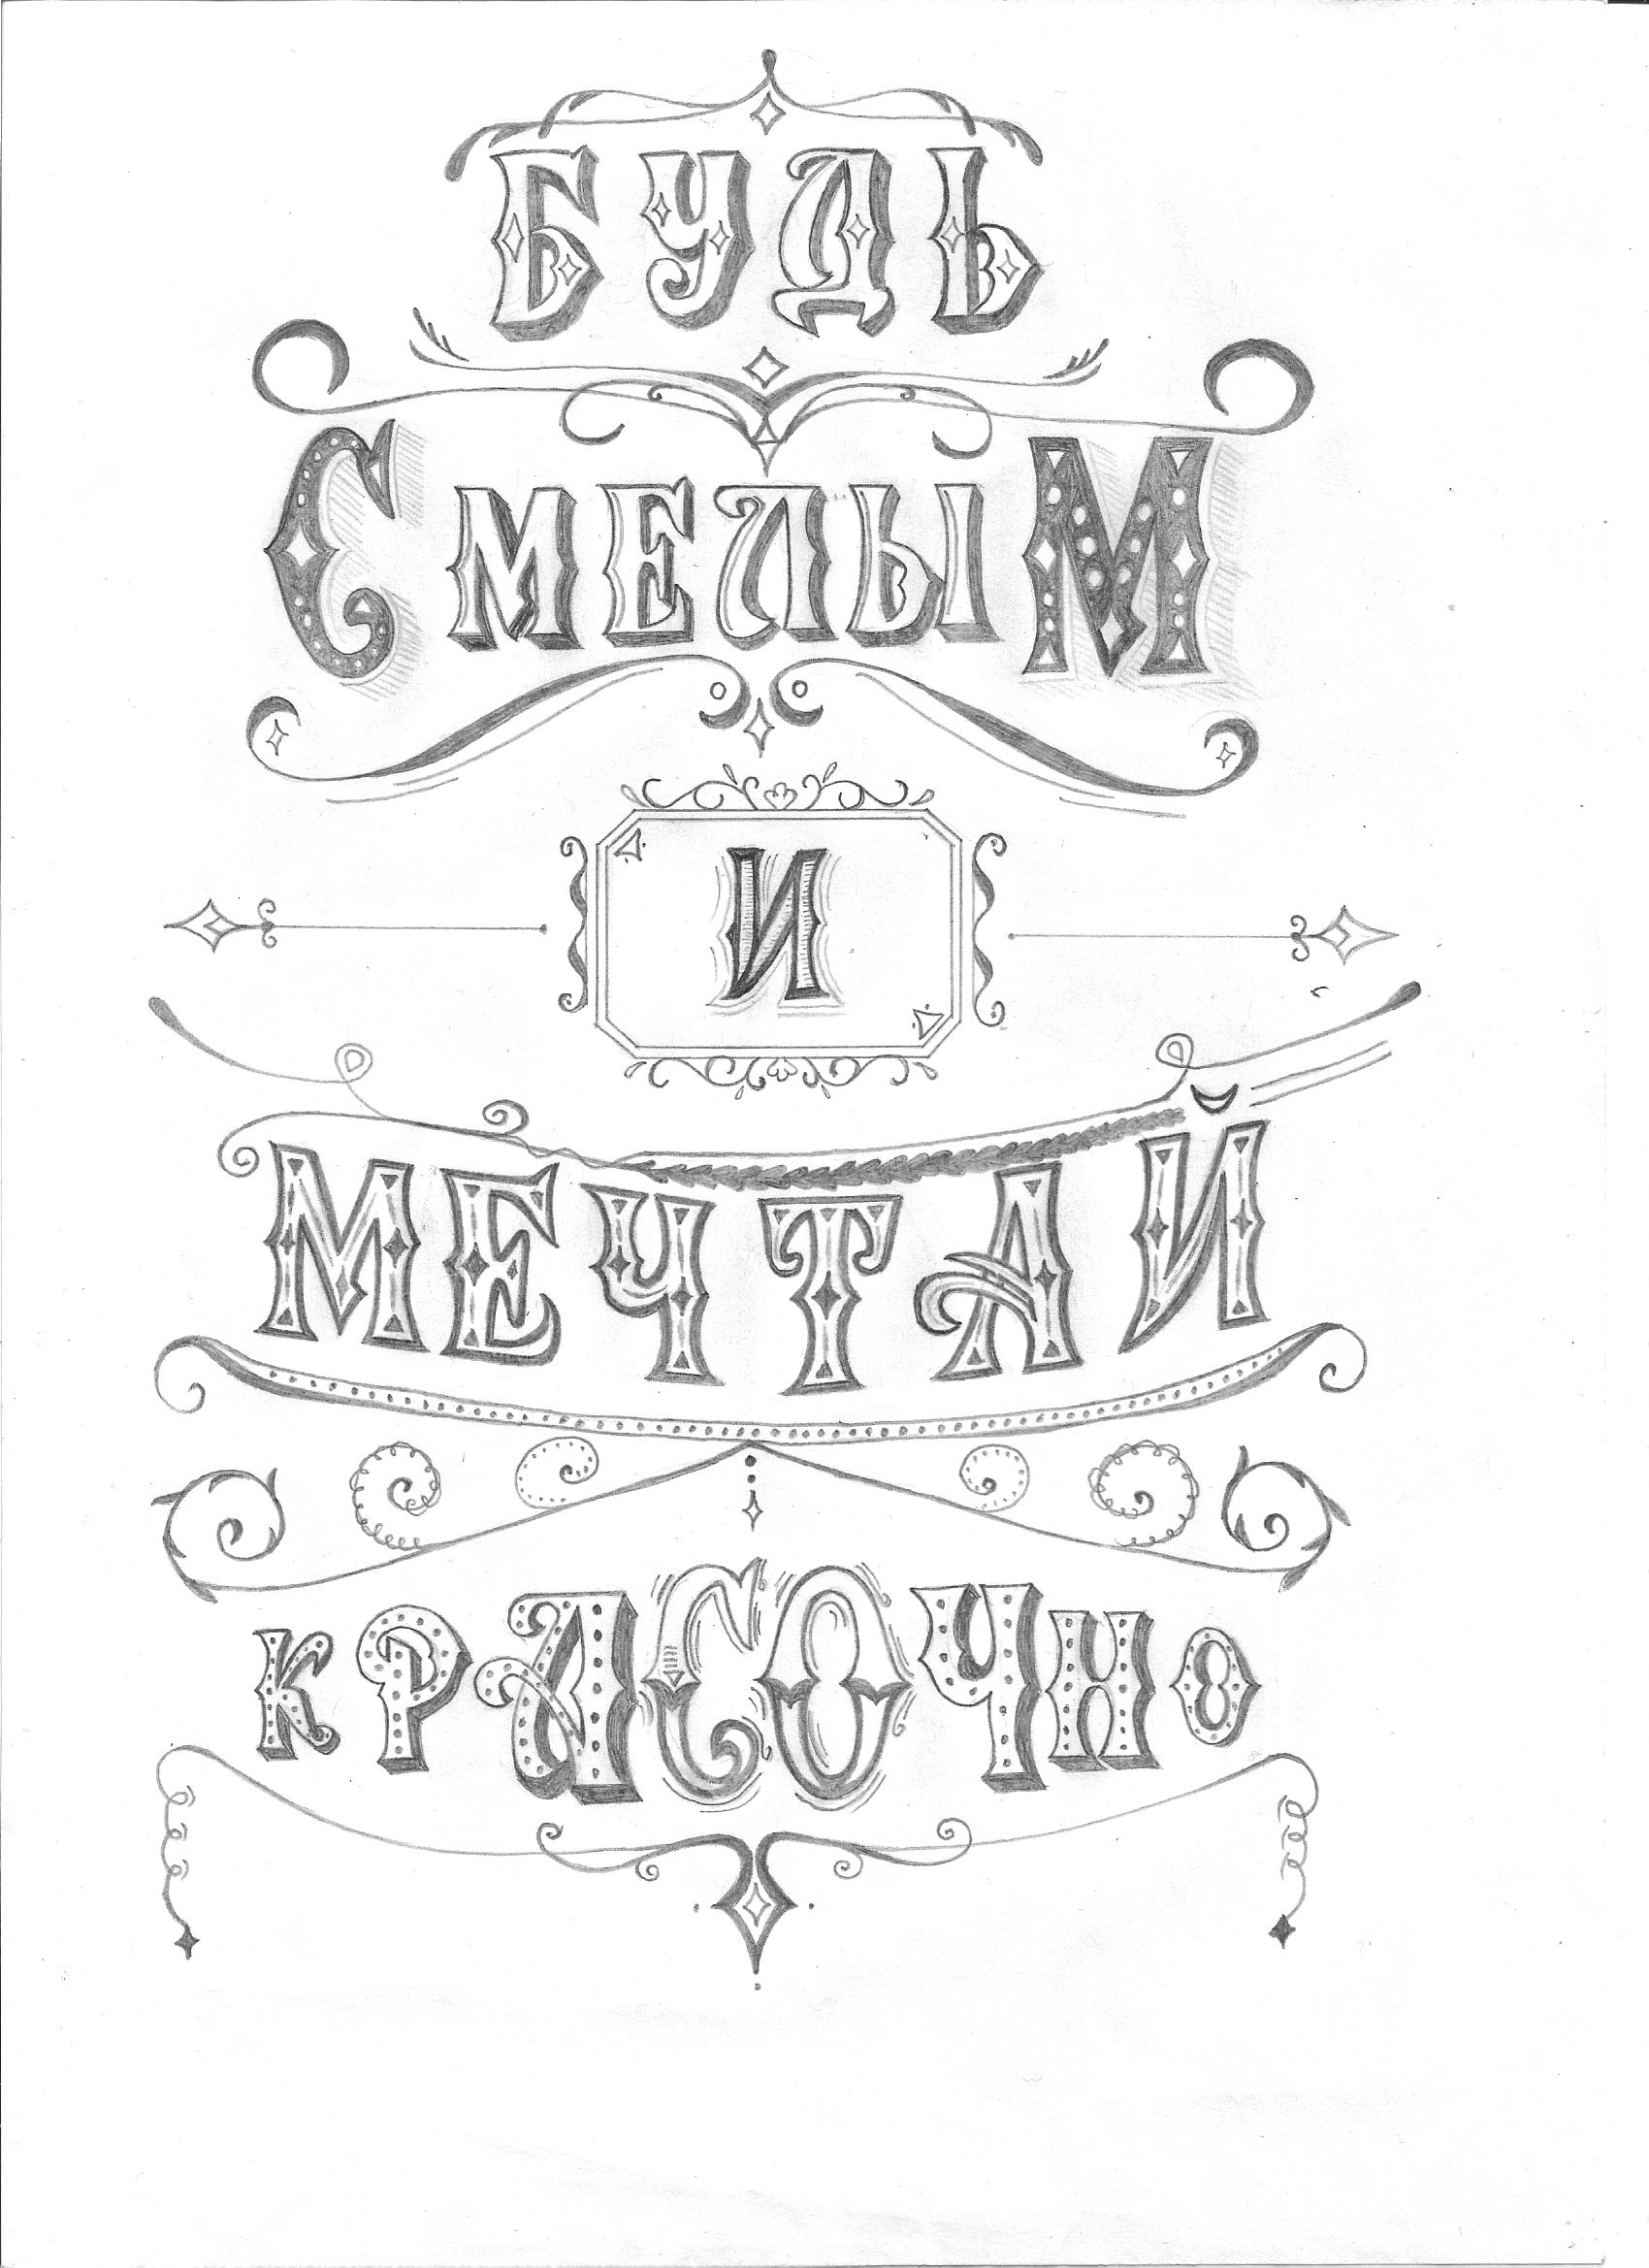 БУДЬ
СМЕЛЫМ
И
МЕЧТАЙ
КРАСОЧНО